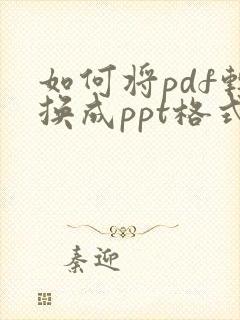 如何将pdf转
换成ppt格式
秦迎